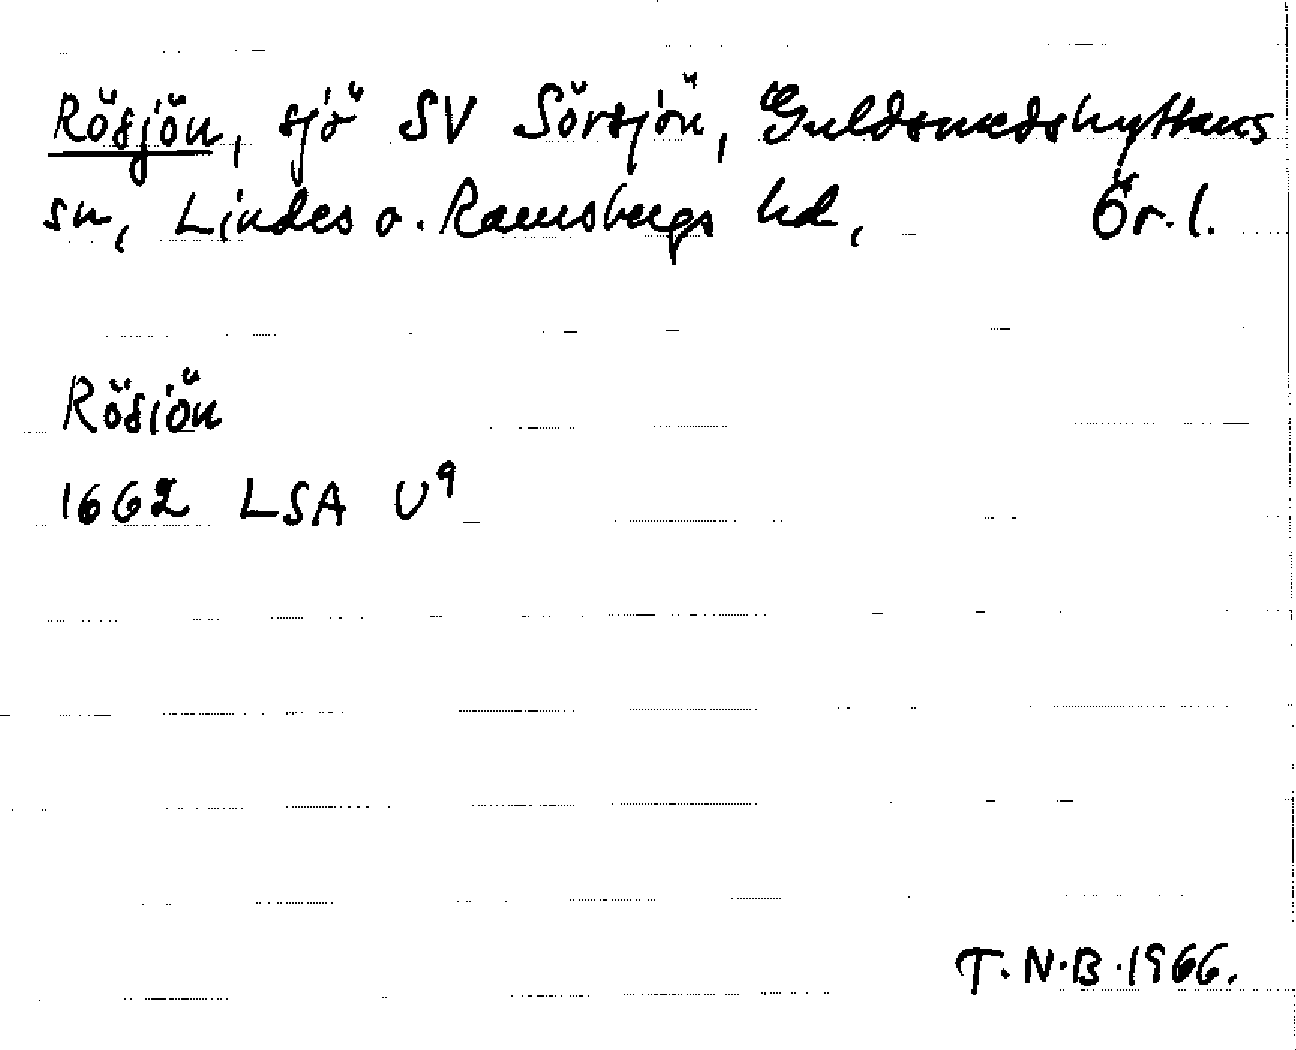 Rösjön, sjö SV Sörsjön, Guldsmedshyttans
sn, Lindes o. Ramsbergs hd, Ör. l.
Rösiön
1662 LSA U⁹
T.N.B. 1966.